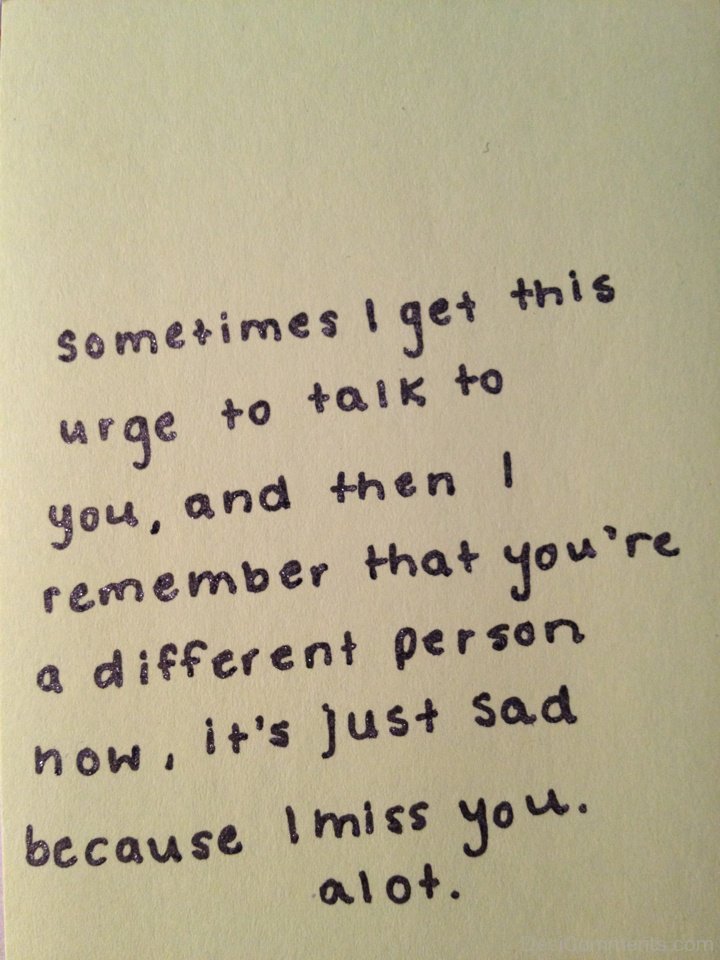 sometimes I get this
urge to talk to
you, and then I
remember that you're
a different person
now, it's just sad
because I miss you.
alot.
DesiComments.com